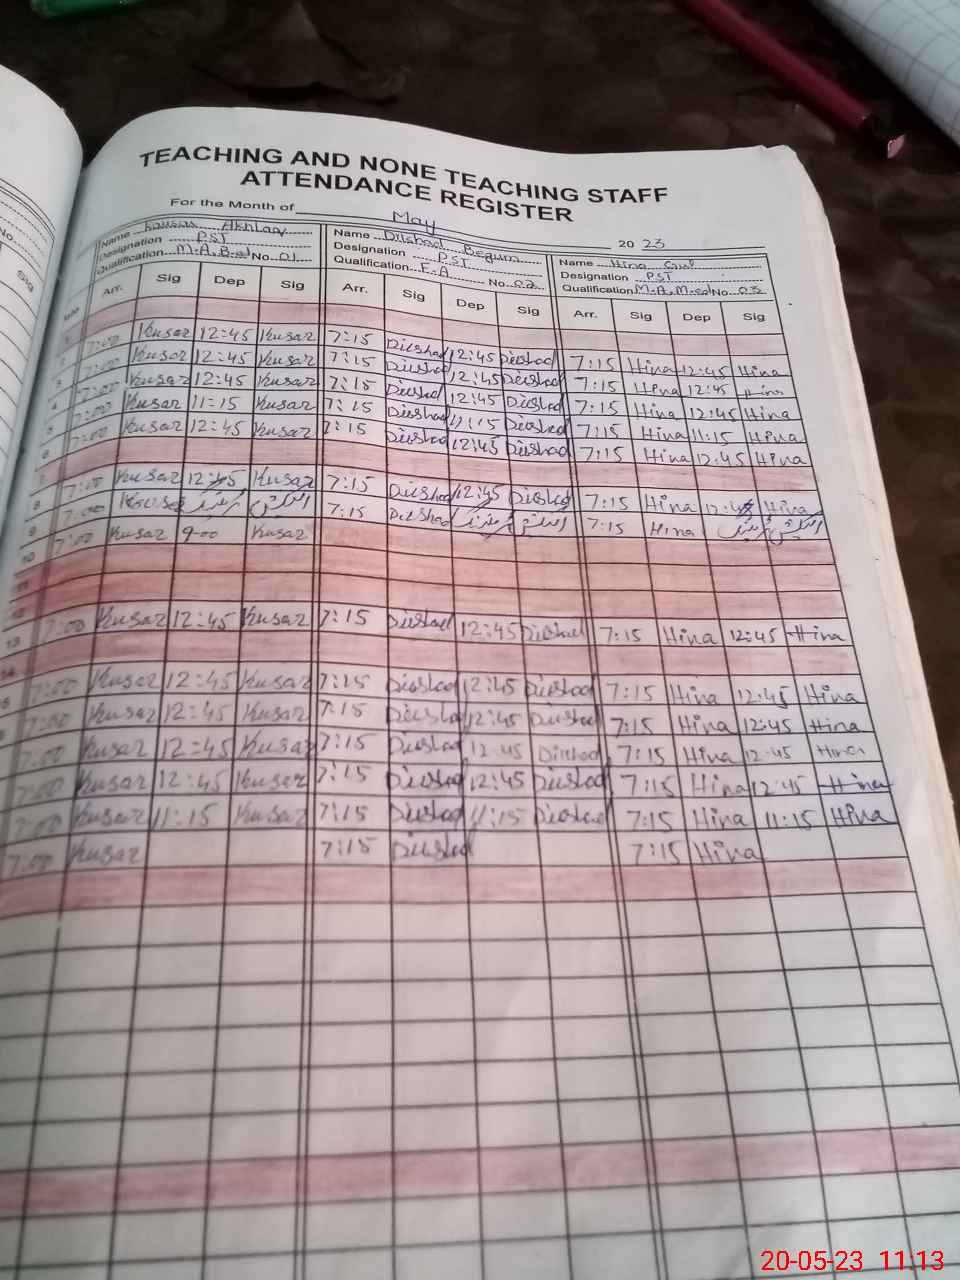 TEACHING AND NONE TEACHING STAFF
ATTENDANCE REGISTER
For the Month of May 2023
Name Kausar Akhtar Name Dilshad Begum Name Hina Gul
Designation PST Designation PST Designation PST
Qualification M.A.B.ed No 01 Qualification F.A No 02 Qualification M.A.M.ed No 03
Arr. Sig Dep Sig Arr. Sig Dep Sig Arr. Sig Dep Sig
1
2 7:00 Kusar 12:45 Kusar 7:15 Dilshad 12:45 Dilshad 7:15 Hina 12:45 Hina
3 7:00 Kusar 12:45 Kusar 7:15 Dilshad 12:45 Dilshad 7:15 Hina 12:45 Hina
4 7:00 Kusar 12:45 Kusar 7:15 Dilshad 12:45 Dilshad 7:15 Hina 12:45 Hina
5 7:00 Kusar 11:15 Kusar 7:15 Dilshad 11:15 Dilshad 7:15 Hina 11:15 Hina
6 7:00 Kusar 12:45 Kusar 7:15 Dilshad 12:45 Dilshad 7:15 Hina 12:45 Hina
7
8 7:00 Kusar 12:45 Kusar 7:15 Dilshad 12:45 Dilshad 7:15 Hina 12:45 Hina
9 7:00 Kousar 7:15 Dilshad 7:15 Hina
10 7:00 Kusar 9-00 Kusar
11
12
13 7:00 Kusar 12:45 Kusar 7:15 Dilshad 12:45 Dilshad 7:15 Hina 12:45 Hina
14
7:00 Kusar 12:45 Kusar 7:15 Dilshad 12:45 Dilshad 7:15 Hina 12:45 Hina
7:00 Kusar 12:45 Kusar 7:15 Dilshad 12:45 Dilshad 7:15 Hina 12:45 Hina
7:00 Kusar 12:45 Kusar 7:15 Dilshad 12:45 Dilshad 7:15 Hina 12:45 Hina
7:00 Kusar 12:45 Kusar 7:15 Dilshad 12:45 Dilshad 7:15 Hina 12:45 Hina
7:00 Kusar 11:15 Kusar 7:15 Dilshad 11:15 Dilshad 7:15 Hina 11:15 Hina
7:00 Kusar 7:15 Dilshad 7:15 Hina
20-05-23 11:13